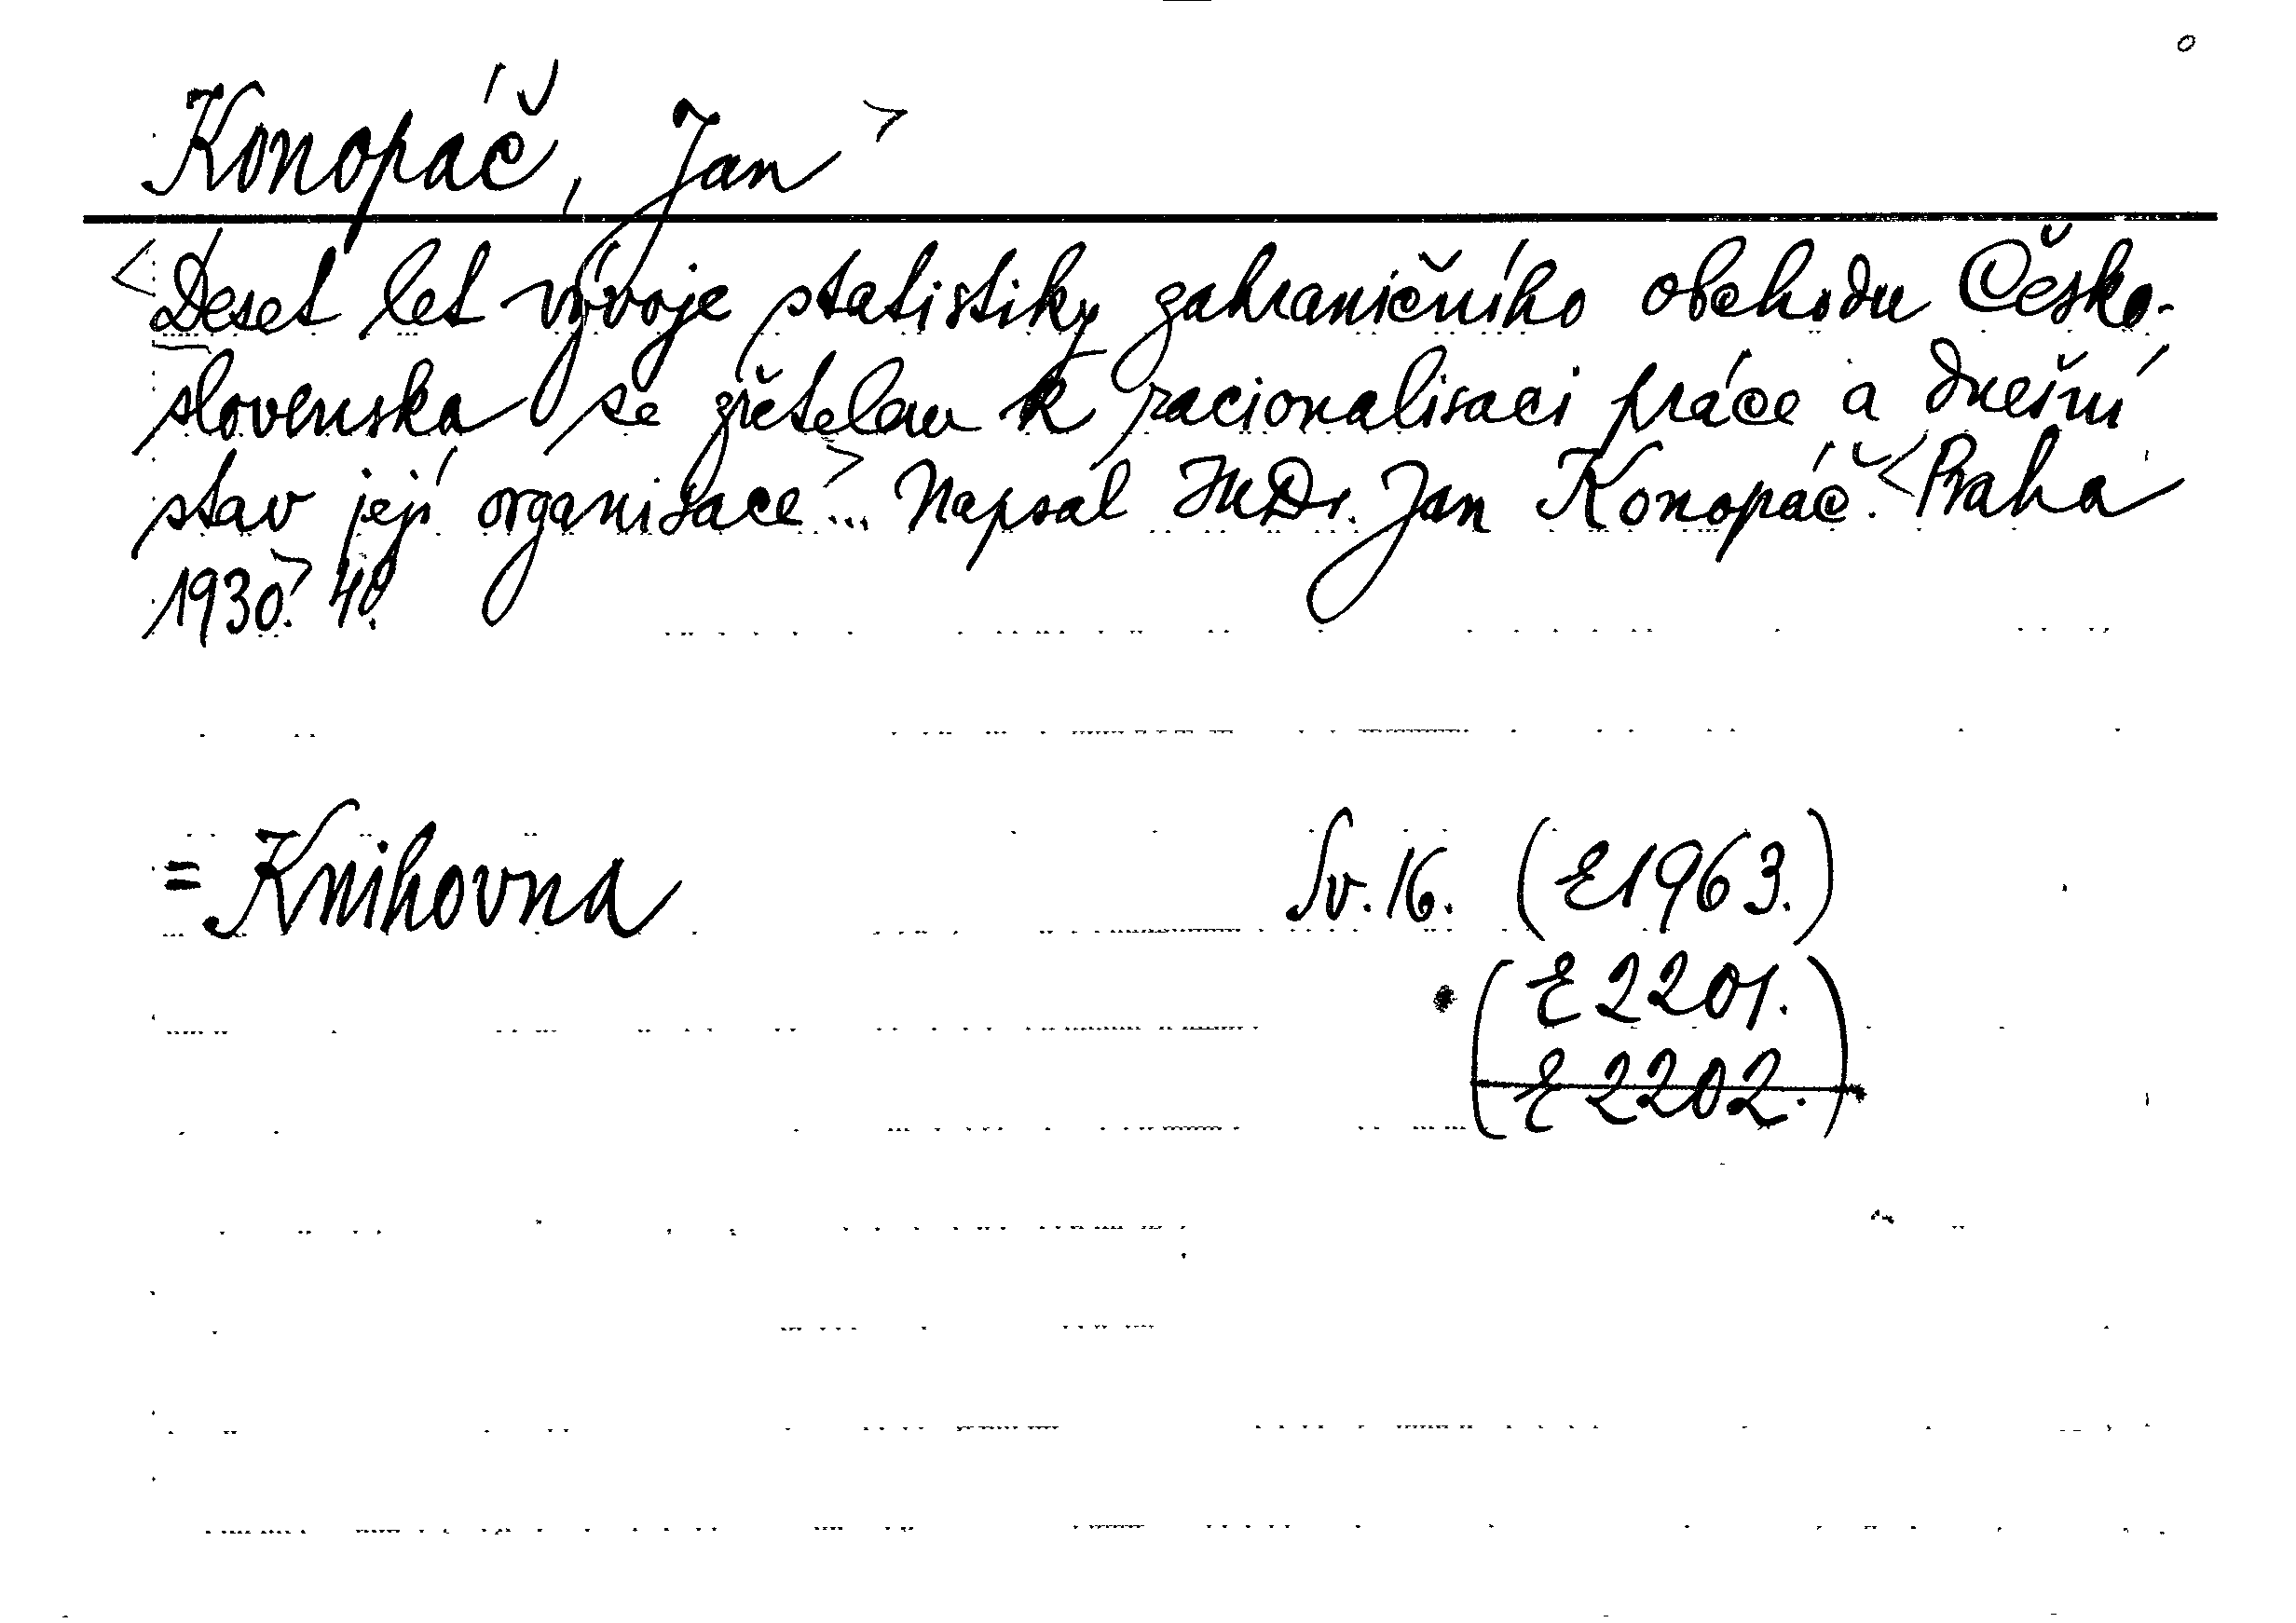 Konopáč, Jan >
<Deset let vývoje statistiky zahraničního obchodu Česko-
slovenska se zřetelem k racionalisaci práce a dnešní
stav její organisace>... Napsal JUDr. Jan Konopáč. <Praha
1930.> 4°.
= Knihovna Sv. 16. (E1963.)
(E 2201.
E 2202.)